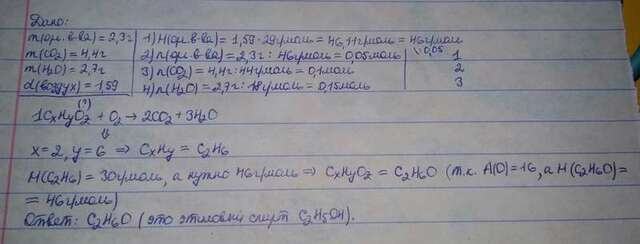 Дано:
m(орг.в-ва)=2,3г
m(CO2)=4,4г
m(H2O)=2,7г
d(воздух)=1,59
1) M(орг.в-ва)=1,59·29г/моль=46,11г/моль=46г/моль
2) n(орг.в-ва)=2,3г:46г/моль=0,05моль
3) n(CO2)=4,4г:44г/моль=0,1моль
4) n(H2O)=2,7г:18г/моль=0,15моль
:0,05
1
2
3
(?)
1CxHyOz + O2 → 2CO2 + 3H2O
⇓
x=2, y=6 ⇒ CxHy = C2H6
M(C2H6)=30г/моль, а нужно 46г/моль ⇒ CxHyOz = C2H6O (т.к. A(O)=16, а M(C2H6O)=
= 46г/моль)
Ответ: C2H6O (это этиловый спирт C2H5OH).